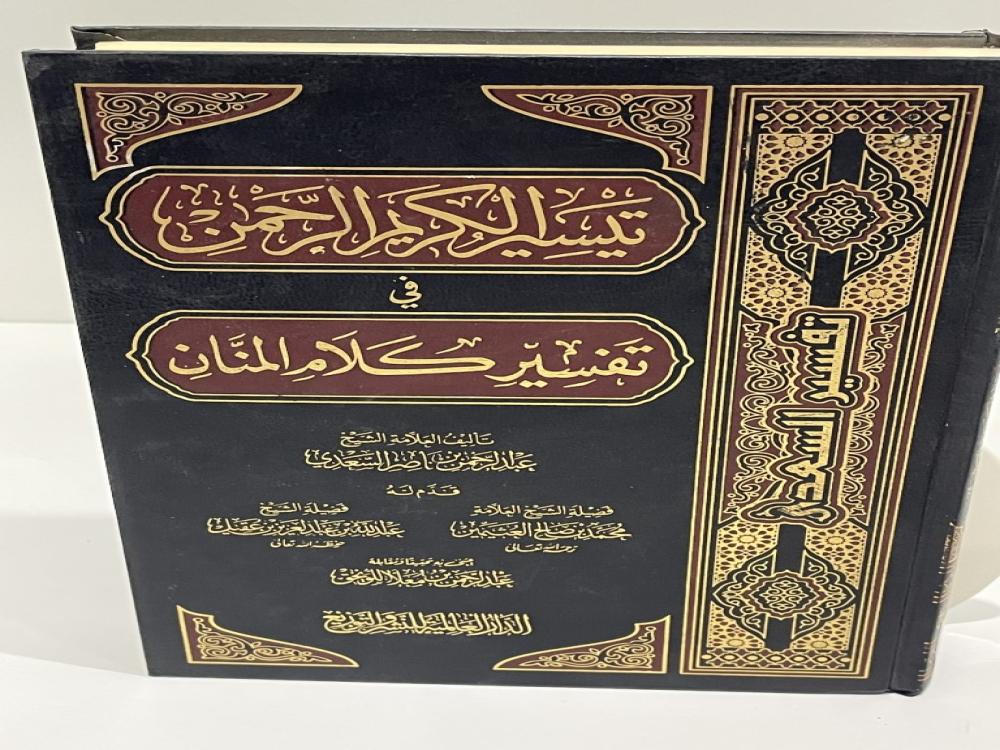 تيسير الكريم الرحمن
في
تفسير كلام المنان
تأليف العلامة الشيخ
عبد الرحمن بن ناصر السعدي
قدم له
فضيلة الشيخ العلامة
محمد بن صالح العثيمين
رحمه الله تعالى
فضيلة الشيخ
عبد الله بن عبد العزيز بن عقيل
حفظه الله تعالى
اعتنى به تحقيقا ومقابلة
عبد الرحمن بن معلا اللويحق
الدار العالمية للنشر والتوزيع
تفسير السعدي